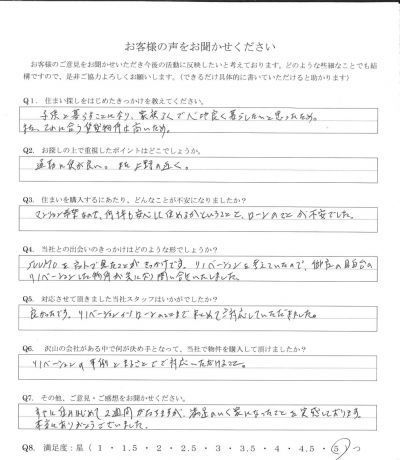 お客様の声をお聞かせください
お客様のご意見をお聞かせいただき今後の活動に反映したいと考えております。どのような些細なことでも結
構ですので、是非ご協力よろしくお願いします。(できるだけ具体的に書いていただけると助かります)
Q1. 住まい探しをはじめたきっかけを教えてください。
子供と暮らすことになり、家族3人で仲良く暮らしたいと思ったため。
また、それに合う賃貸物件は高いため。
Q2. お探しの上で重視したポイントはどこでしょうか。
通勤に便が良い。また上野の近く。
Q3. 住まいを購入するにあたり、どんなことが不安になりましたか?
マンション希望なので、何年も安心して住めるかということと、ローンのことが不安でした。
Q4. 当社との出会いのきっかけはどのような形でしょうか?
SUUMOをネットで見たことがきっかけです。リノベーションを考えていたので、御社の
リノベーションした物件が気になり問い合せいたしました。
Q5. 対応させて頂きました当社スタッフはいかがでしたか?
良かったです。リノベーションからローンのことまでまとめてご対応していただきました。
Q6. 沢山の会社がある中で何が決め手となって、当社で物件を購入して頂けましたか?
リノベーションの事例とまるごとでご対応いただけること。
Q7. その他、ご意見・ご感想をお聞かせください。
まだ住みはじめて2週間がたちますが、満足のいく家になったことを実感しております。
本当にありがとうございました。
Q8. 満足度:星( 1 ・ 1.5 ・ 2 ・ 2.5 ・ 3 ・ 3.5 ・ 4 ・ 4.5 ・ 5 )つ